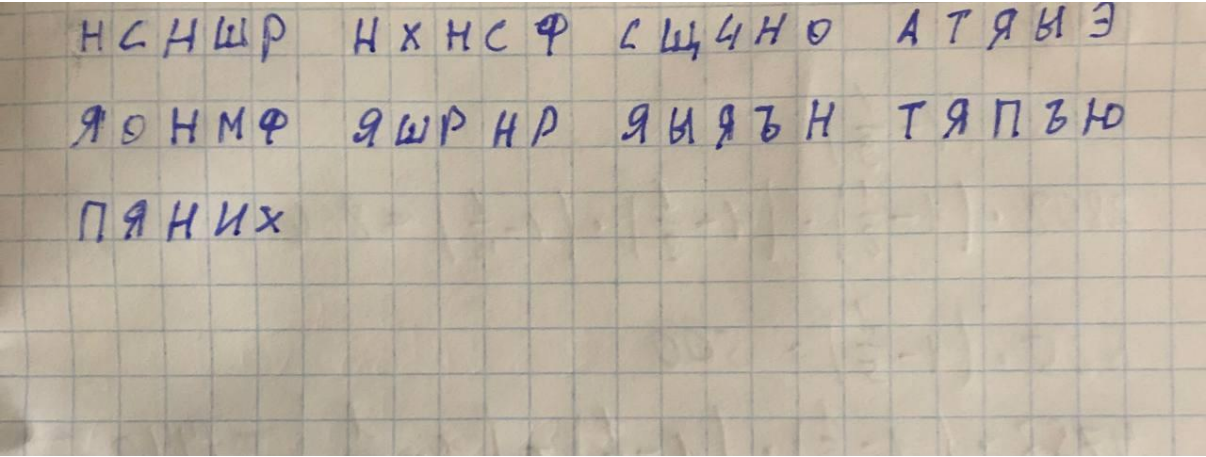 НСНШР НХНСФ СЩЧНО АТЯЫЭ
ЯОНМФ ЯШРНР ЯЫЯЪН ТЯПЪЮ
ПЯНИХ